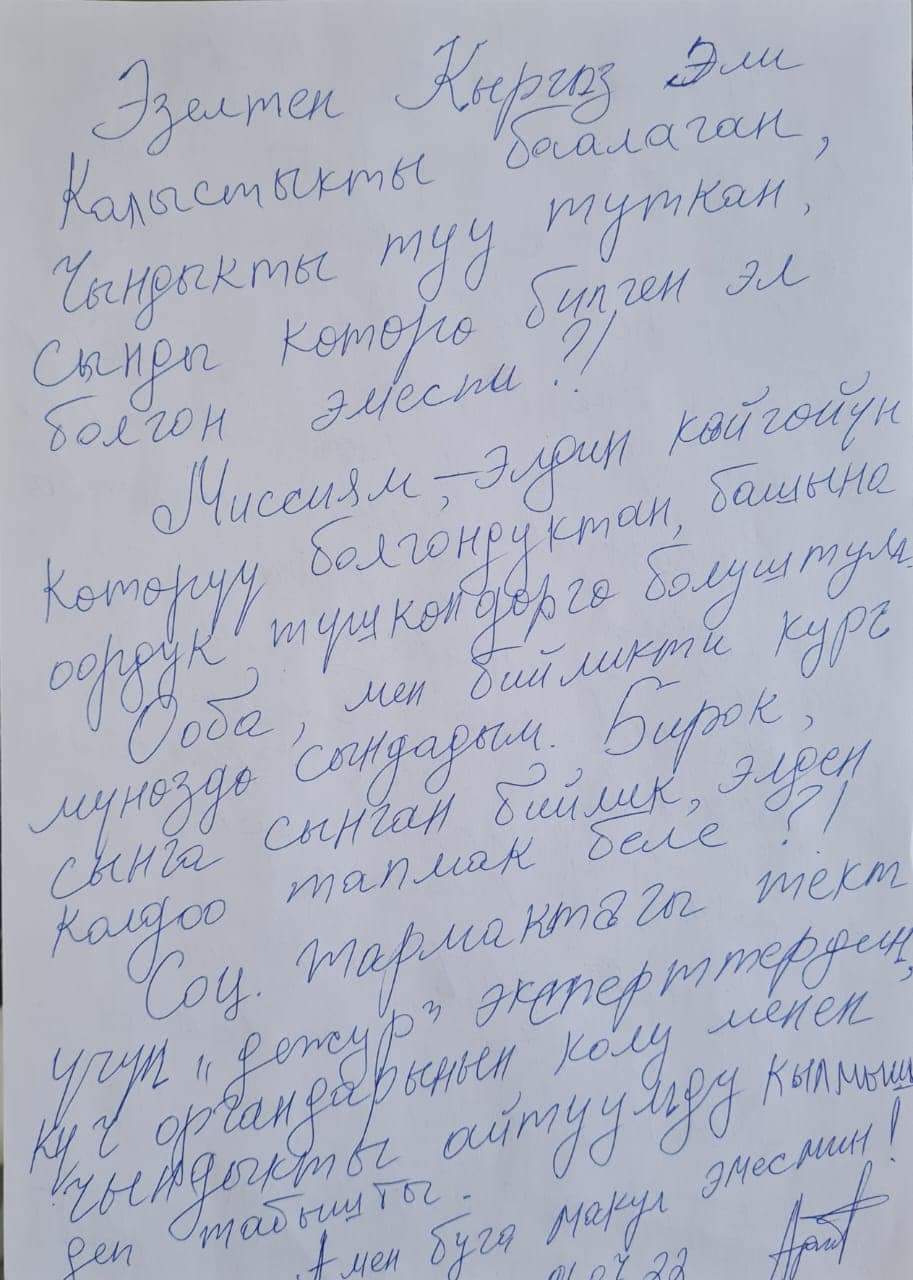 Эзелтен Кыргыз Эли
Калыстыкты баалаган,
Чындыкты туу туткан,
сынды которо билген эл
болгон эмеспи?!
Миссиям, – элдин көйгөйүн
которуу болгондуктан, башына
оордук түшкөндөргө болуштум.
Ооба, мен бийликти курч
мүнөздө сындадым. Бирок,
сынга сынган бийлик, элден
колдоо тапмак беле?!
Соц. тармактагы текст
үчүн, „дежур" эксперттердин,
күч органдарынын колу менен
чындыкты айтуумду кылмыш
деп табышты.
А мен буга макул эмесмин!
22